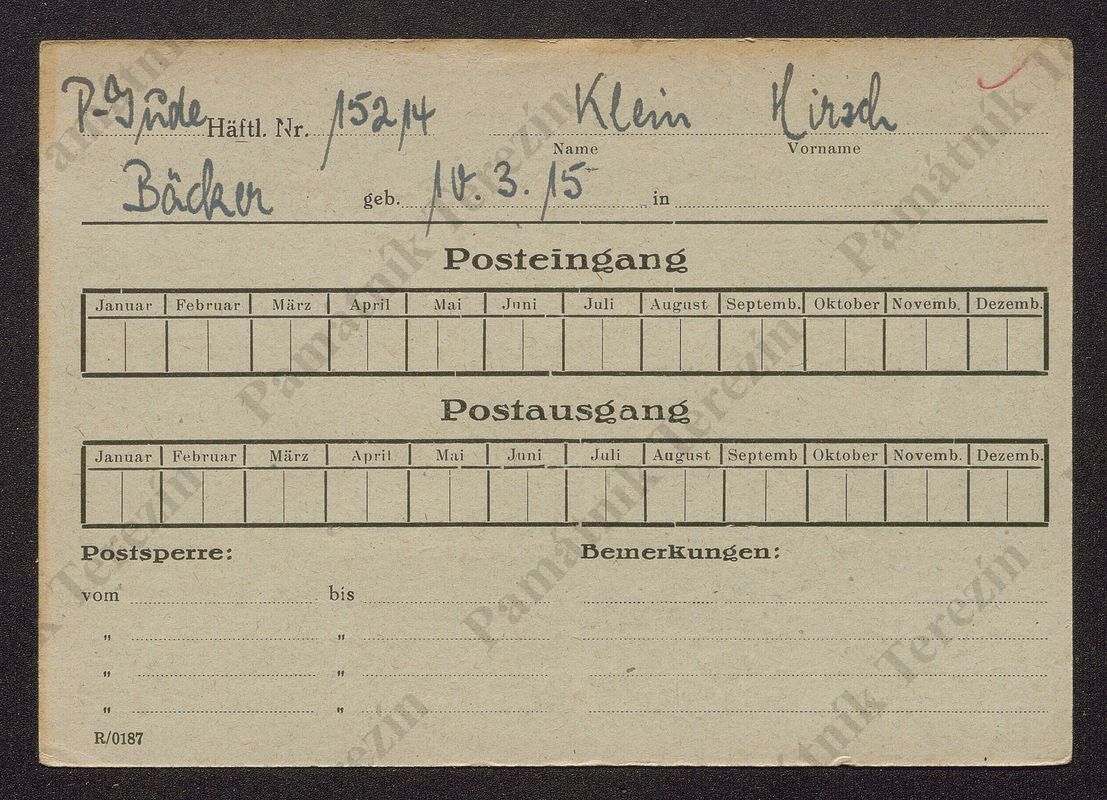 P-Jude Häftl. Nr. 15214 Klein Hirsch
Name Vorname
Bäcker geb. 10. 3. 15 in
Posteingang
Januar Februar März April Mai Juni Juli August Septemb. Oktober Novemb. Dezemb.
Postausgang
Januar Februar März April Mai Juni Juli August Septemb Oktober Novemb. Dezemb.
Postsperre: Bemerkungen:
vom bis
" "
" "
" "
R/0187
Památník Terezín